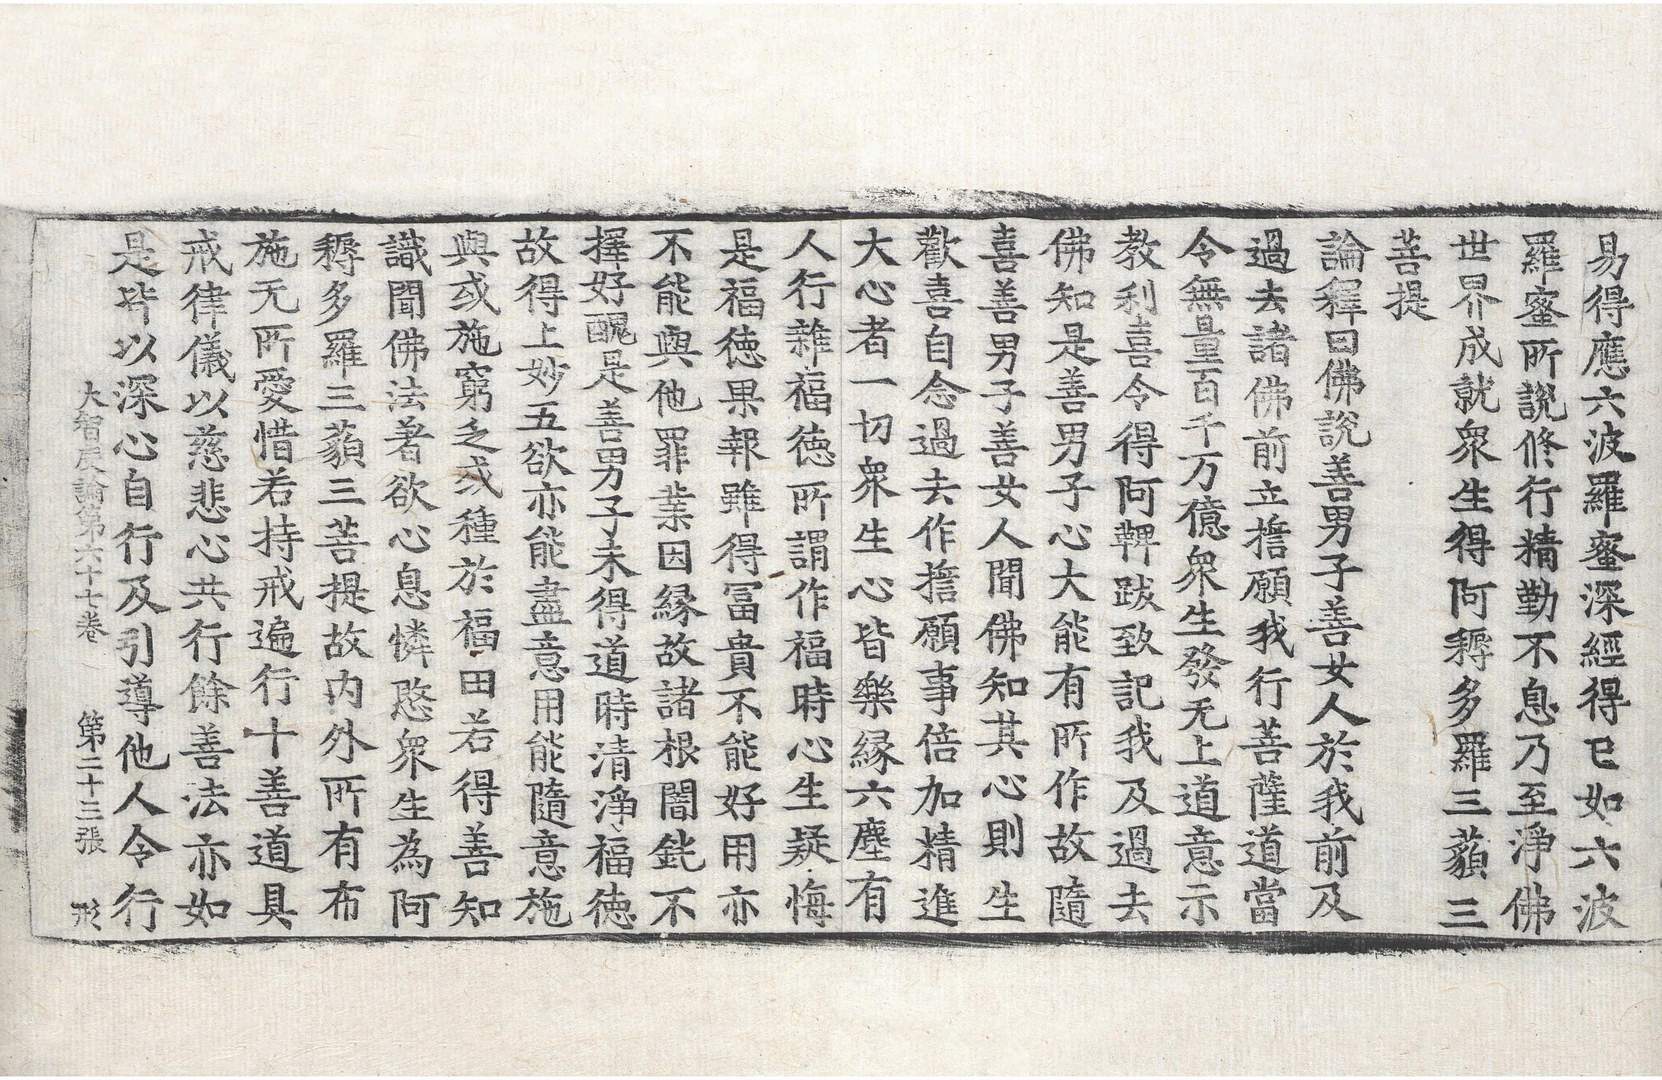 易得應六波羅蜜深經得已如六波
羅蜜所說修行精勤不息乃至淨佛
世界成就衆生得阿耨多羅三藐三
菩提
論釋曰佛說善男子善女人於我前及
過去諸佛前立擔願我行菩薩道當
令無量百千万億衆生發无上道意示
教利喜令得阿鞞跋致記我及過去
佛知是善男子心大能有所作故隨
喜善男子善女人聞佛知其心則生
歡喜自念過去作擔願事倍加精進
大心者一切衆生心皆樂緣六塵有
人行雜福德所謂作福時心生疑悔
是福德果報雖得冨貴不能好用亦
不能與他罪業因緣故諸根闇鈍不
擇好醜是善男子未得道時清淨福德
故得上妙五欲亦能盡意用能隨意施
與或施窮乏或種於福田若得善知
識聞佛法著欲心息憐愍衆生為阿
耨多羅三藐三菩提故内外所有布
施无所愛惜若持戒遍行十善道具
戒律儀以慈悲心共行餘善法亦如
是皆以深心自行及引導他人令行
大智度論第六十七卷 第二十三張 形